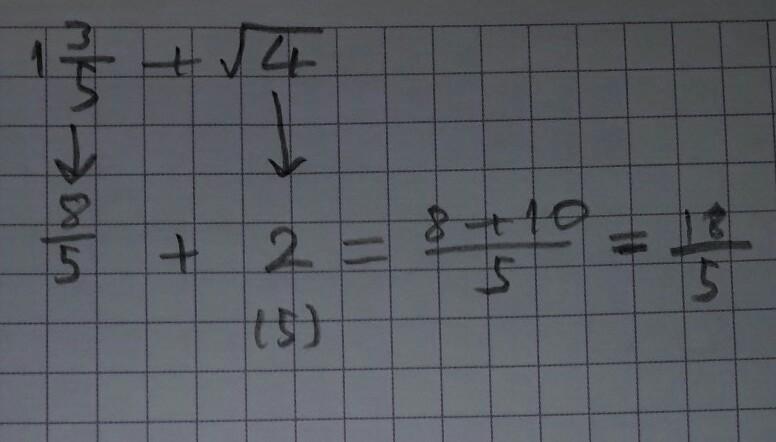 1 3/5 + √4
↓ ↓
8/5 + 2 = 8+10/5 = 18/5
(5)